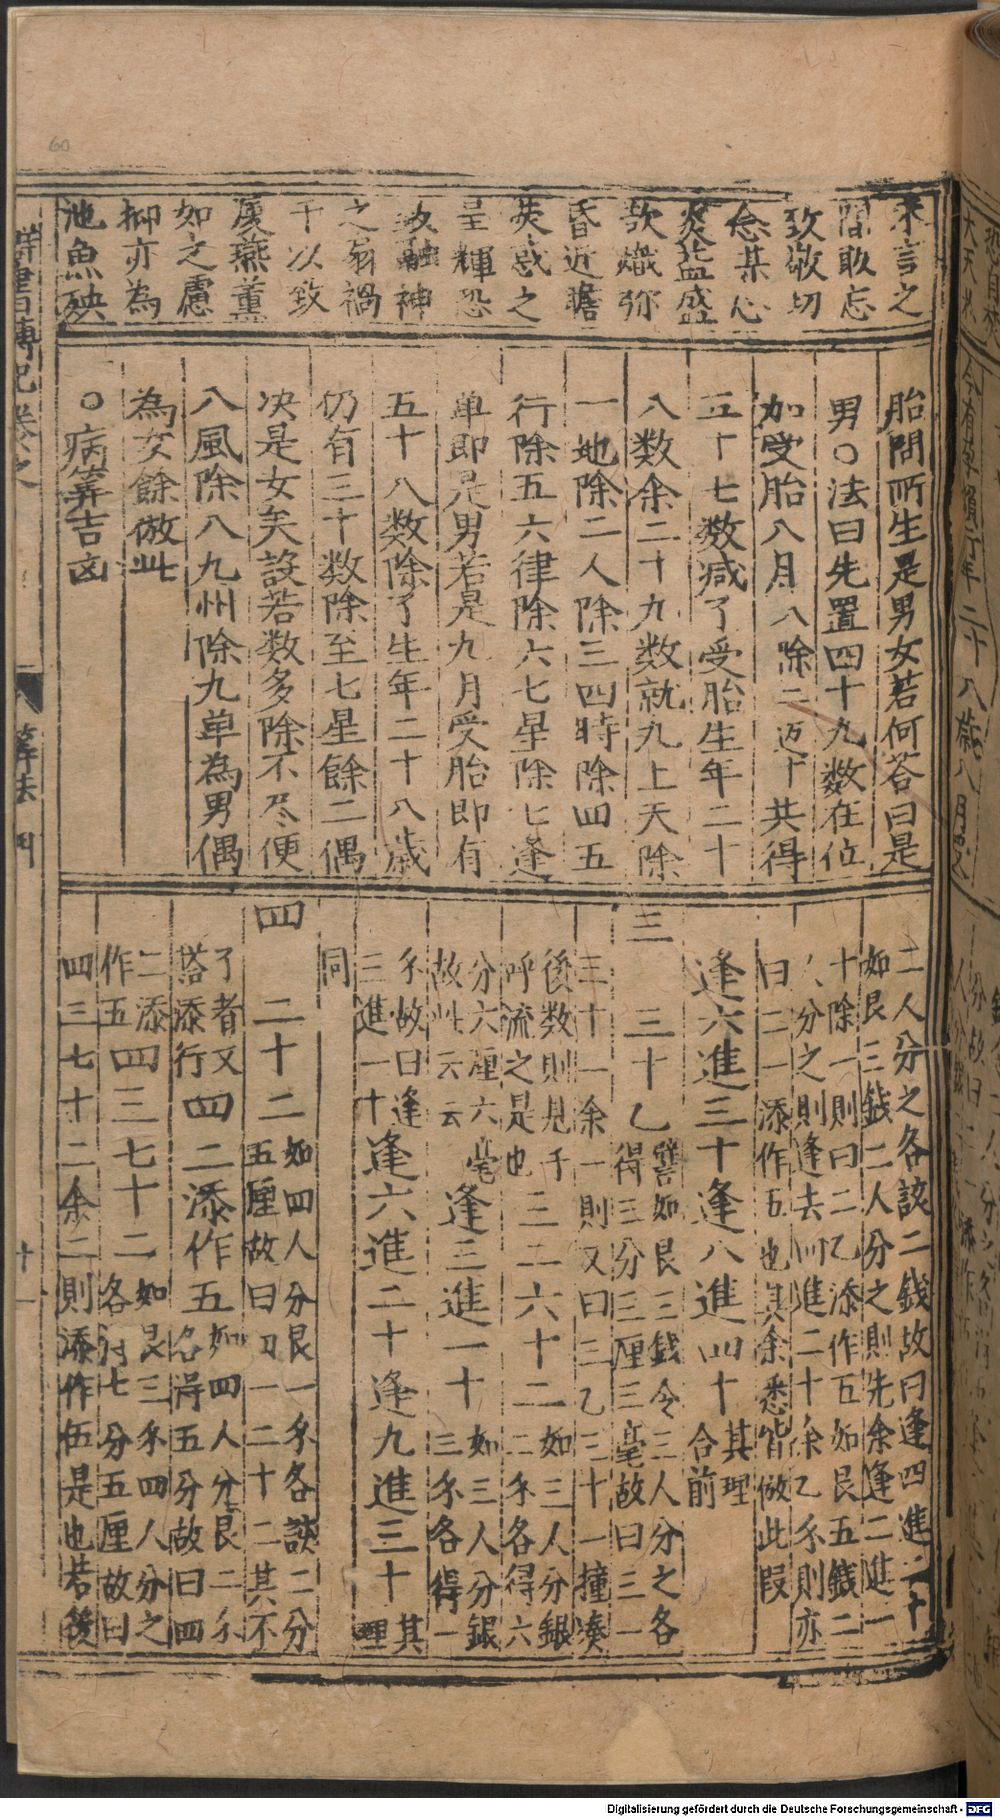 未言之
間敢忘
致敬切
念某心
炎益盛
歘熾弥
昏近瞻
熒惑之
呈輝恐
致融神
之翁禍
干以致
厦燕薫
如之慮
抑亦為
池魚殃
胎問所生是男女若何答曰是
男〇法曰先置四十九数在位
加受胎八月八除二迈十共得
五十七数减了受胎生年二十
八数余二十九数就九上天除
一地除二人除三四時除四五
行除五六律除六七星除七逢
单即是男若是九月受胎即有
五十八数除了生年二十八歲
仍有三十数除至七星餘二偶
决是女矣設若数多除不尽便
八風除八九州除九单為男偶
為女餘倣此
〇病筭吉凶
二人分之各該二錢故曰逢四進二十
如艮三錢二人分之則先余逢二進一
十除一則曰二乙添作五如艮五錢二
人分之則逢去四進二十余乙禾則亦
曰二一添作五也其余悉皆倣此叚
逢六進三十逢八進四十其理
合前
三
三十乙譬如艮三錢令三人分之各
得三分三厘三毫故曰三一
三十一余一則又曰三乙三十一撞湊
後数則見千
呼流之是也
三二六十二如三人分銀
二禾各得六
分六厘六毫
故此云云
逢三進一十如三人分銀
三禾各得一
禾故曰逢
三進一十
逢六進二十逢九進三十其
理
同
四
二十二如四人分艮一禾各談二分
五厘故曰四一二十二其不
了者又
搭添行
四二添作五如四人分艮二禾
各淂五分故曰四
二添
作五
四三七十二如艮三禾四人分之
各淂七分五厘故曰
四三七十二余二則添作伍是也若後
筭法門
十一
60
Digitalisierung gefördert durch die Deutsche Forschungsgemeinschaft - DFG